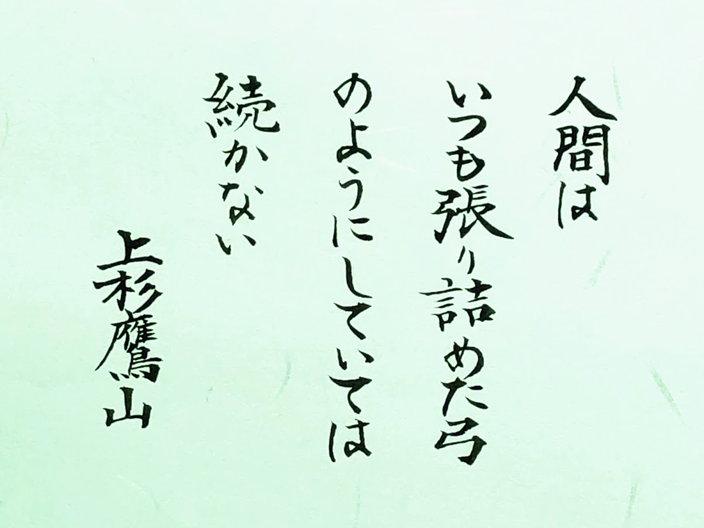 人間は
いつも張り詰めた弓
のようにしていては
続かない
上杉鷹山